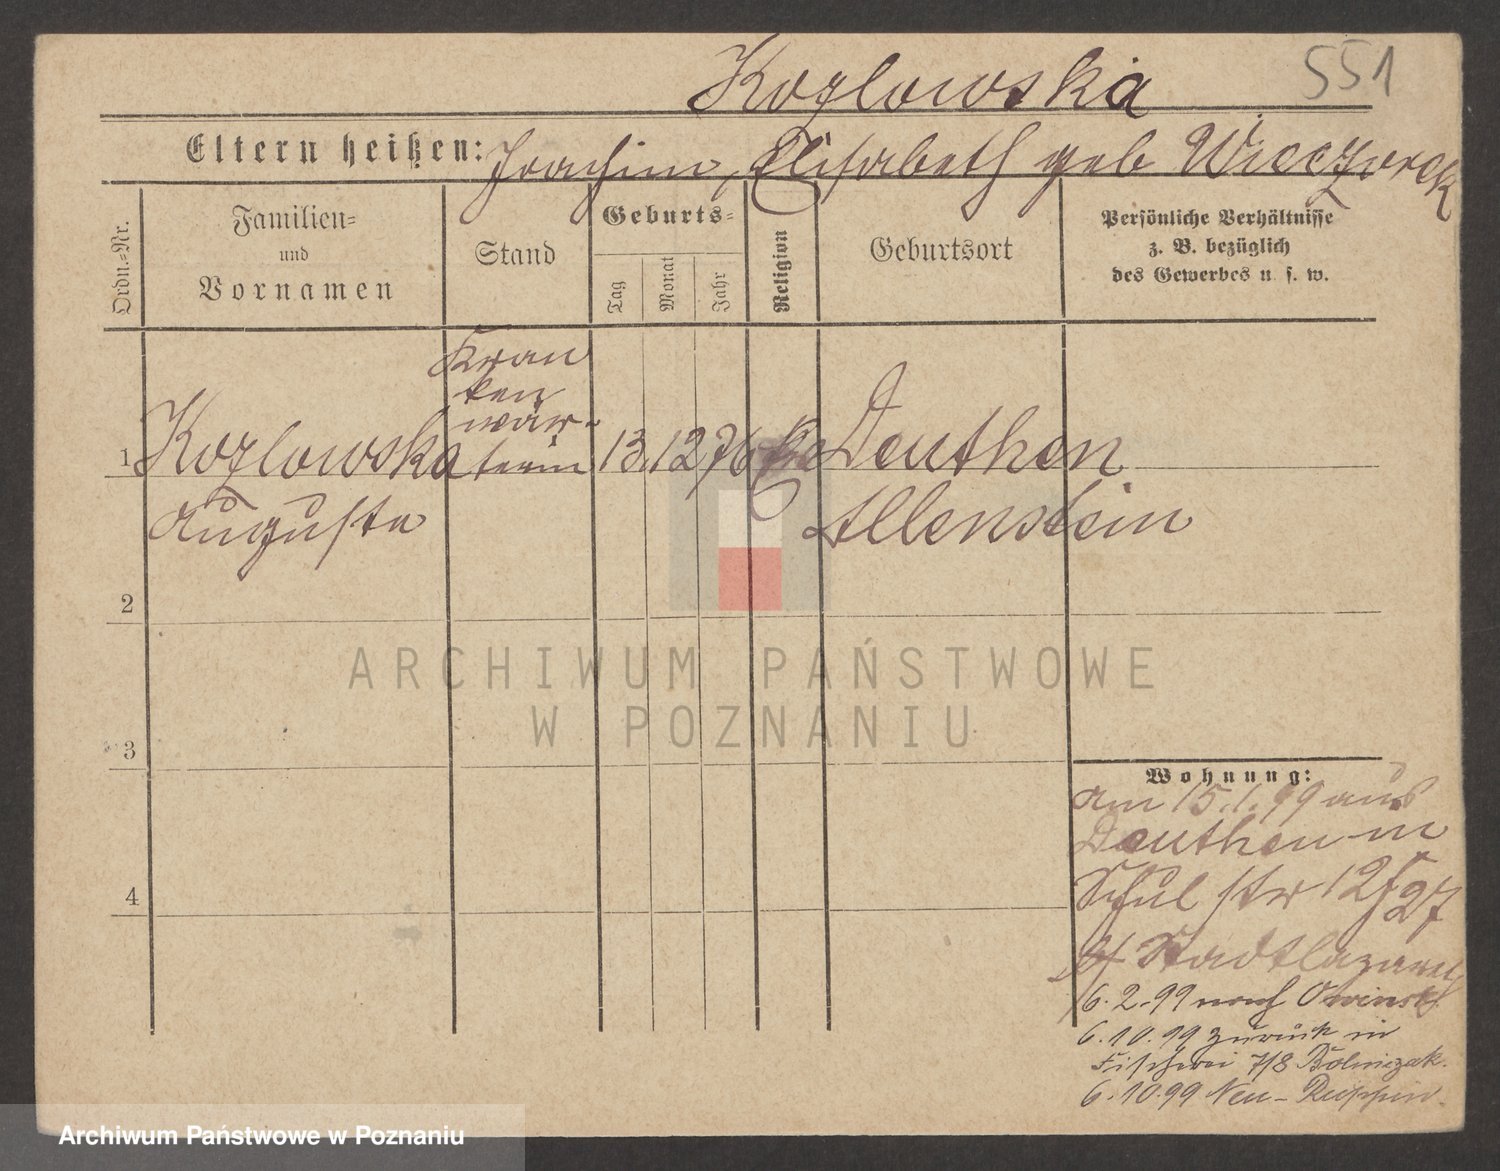 Kozlowska
551
Eltern heißen: Joachim, Elisabeth geb Wieczorek
Ordn.-Nr.
Familien-
und
Vornamen
Stand
Geburts-
Tag
Monat
Jahr
Religion
Geburtsort
Persönliche Verhältnisse
z. B. bezüglich
des Gewerbes u. s. w.
Kran
ken
wär-
1 Kozlowska terin 13. 12 76 Deuthen
Auguste Allenstein
2
ARCHIWUM PAŃSTWOWE
W POZNANIU
3
Wohnung:
am 15.1.99 aus
Deuthen in
Schul str 12
Stadtlazarett
4
6.2.99 nach Owinsk
6.10.99 zurück in
Fischerei 7/8 Bolniczak.
6.10.99 Neu-Ruppin.
Archiwum Państwowe w Poznaniu